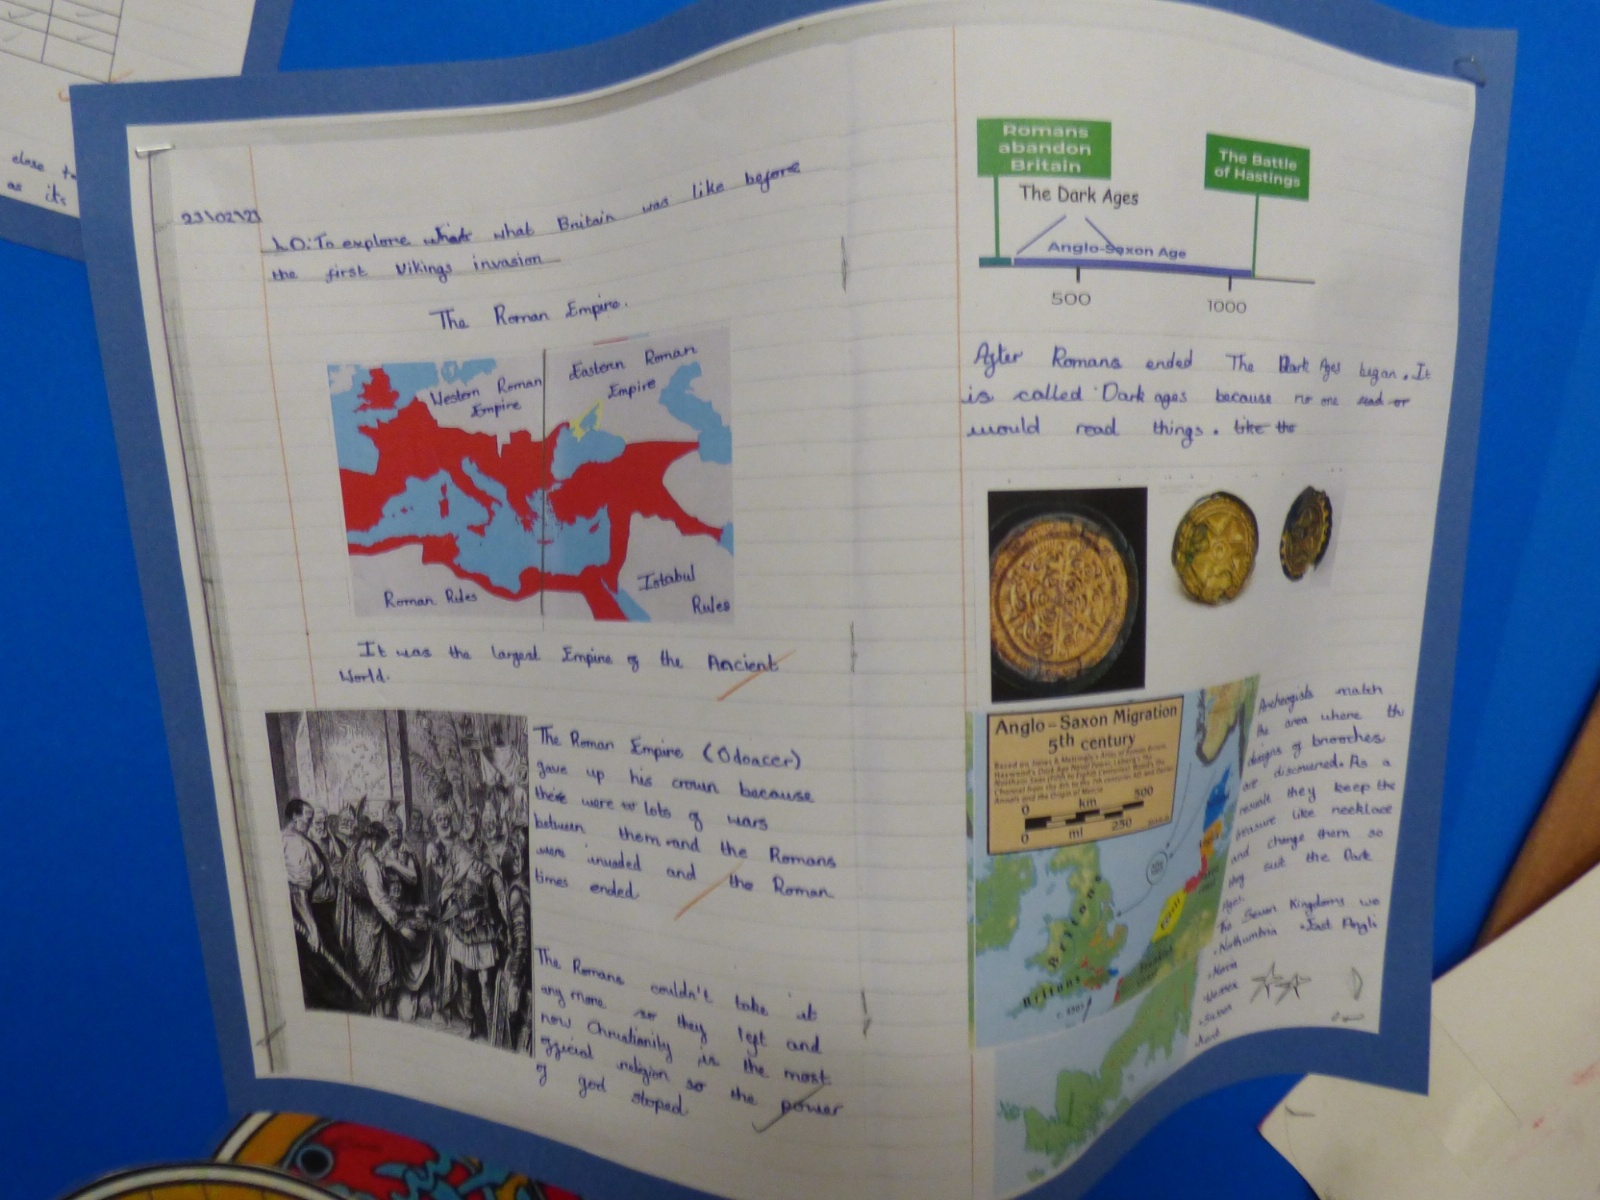 close to
as its
23\02\21
LO: To explore what what Britain was like before
the first Vikings invasion
The Roman Empire.
Western Roman
Empire
Eastern Roman
Empire
Roman Rules
Istabul
Rules
It was the largest Empire of the Ancient
World.
The Roman Empire (Odoacer)
gave up his crown because
there were lots of wars
between them and the Romans
were invaded and the Roman
times ended
The Romans couldn't take it
any more so they left and
now Christianity is the most
official religion so the power
of god stoped
Romans
abandon
Britain
The Battle
of Hastings
The Dark Ages
Anglo-Saxon Age
500
1000
After Romans ended The Dark Ages began. It
is called Dark ages because no one read or
would read things. like the
Anglo-Saxon Migration
5th century
0 km 500
0 mi 250
Britons
Britons
Archeogists match
the area where the
designs of brooches
are discovered. As a
result they keep the
treasure like necklace
and change them so
they suit the Dark
Ages.
The Seven Kingdoms we
• Nothumbria • East Angli
• Wessex
• Sussex
• Kent